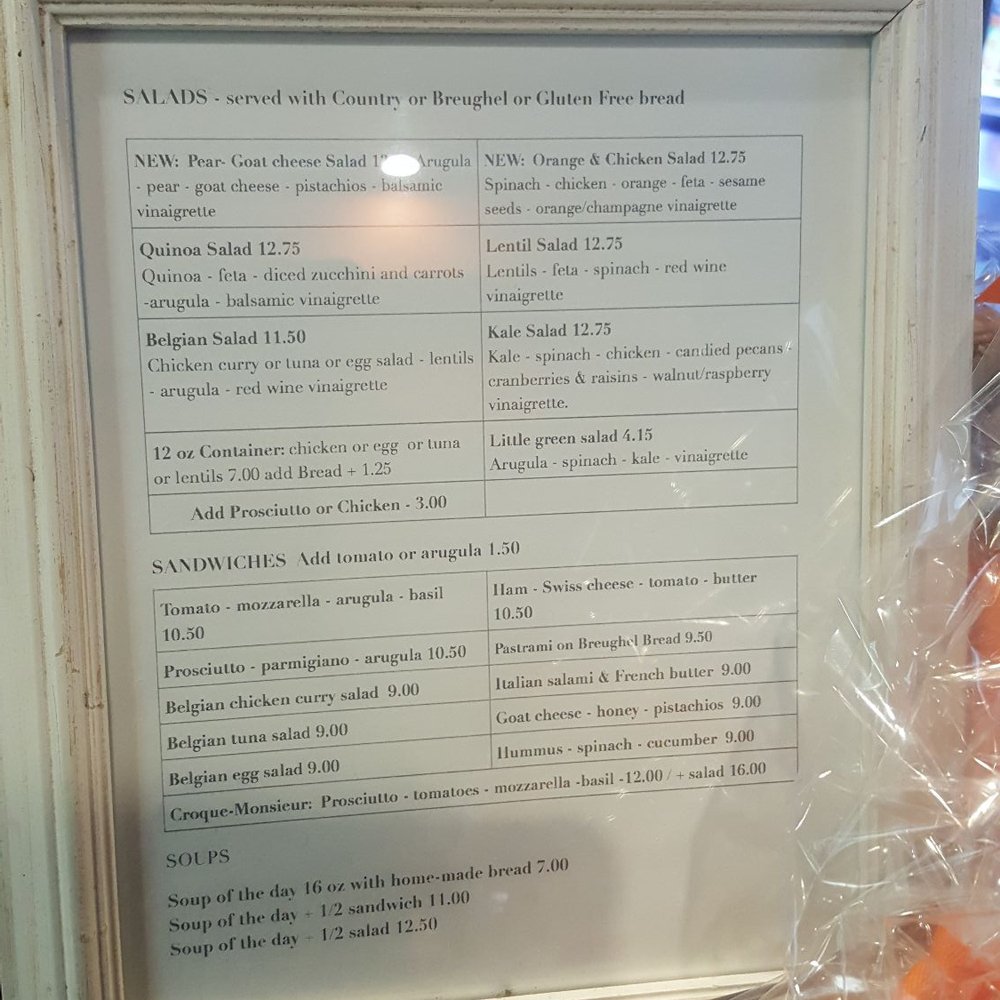 SALADS - served with Country or Breughel or Gluten Free bread
NEW: Pear- Goat cheese Salad Arugula
- pear - goat cheese - pistachios - balsamic
vinaigrette
NEW: Orange & Chicken Salad 12.75
Spinach - chicken - orange - feta - sesame
seeds - orange/champagne vinaigrette
Quinoa Salad 12.75
Quinoa - feta - diced zucchini and carrots
-arugula - balsamic vinaigrette
Lentil Salad 12.75
Lentils - feta - spinach - red wine
vinaigrette
Belgian Salad 11.50
Chicken curry or tuna or egg salad - lentils
- arugula - red wine vinaigrette
Kale Salad 12.75
Kale - spinach - chicken - candied pecans/
cranberries & raisins - walnut/raspberry
vinaigrette.
12 oz Container: chicken or egg or tuna
or lentils 7.00 add Bread + 1.25
Little green salad 4.15
Arugula - spinach - kale - vinaigrette
Add Prosciutto or Chicken - 3.00
SANDWICHES Add tomato or arugula 1.50
Tomato - mozzarella - arugula - basil
10.50
Ham - Swiss cheese - tomato - butter
10.50
Prosciutto - parmigiano - arugula 10.50
Pastrami on Breughel Bread 9.50
Belgian chicken curry salad 9.00
Italian salami & French butter 9.00
Belgian tuna salad 9.00
Goat cheese - honey - pistachios 9.00
Belgian egg salad 9.00
Hummus - spinach - cucumber 9.00
Croque-Monsieur: Prosciutto - tomatoes - mozzarella -basil -12.00 / + salad 16.00
SOUPS
Soup of the day 16 oz with home-made bread 7.00
Soup of the day + 1/2 sandwich 11.00
Soup of the day + 1/2 salad 12.50